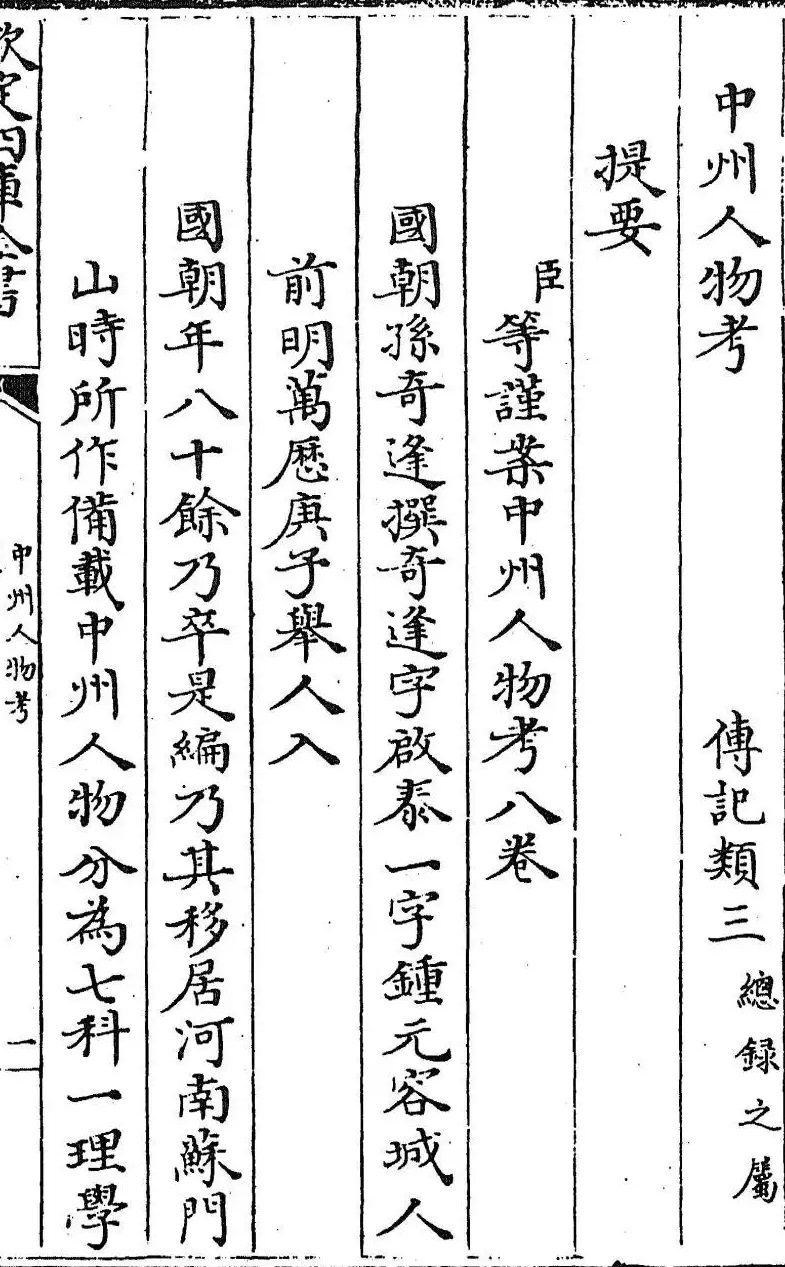 中州人物考 傳記類三 總録之屬
提要
臣等謹案中州人物考八卷
國朝孫奇逢撰奇逢字啟泰一字鍾元容城人
前明萬歷庚子舉人入
國朝年八十餘乃卒是編乃其移居河南蘇門
山時所作備載中州人物分為七科一理學
欽定四庫全書
中州人物考
二